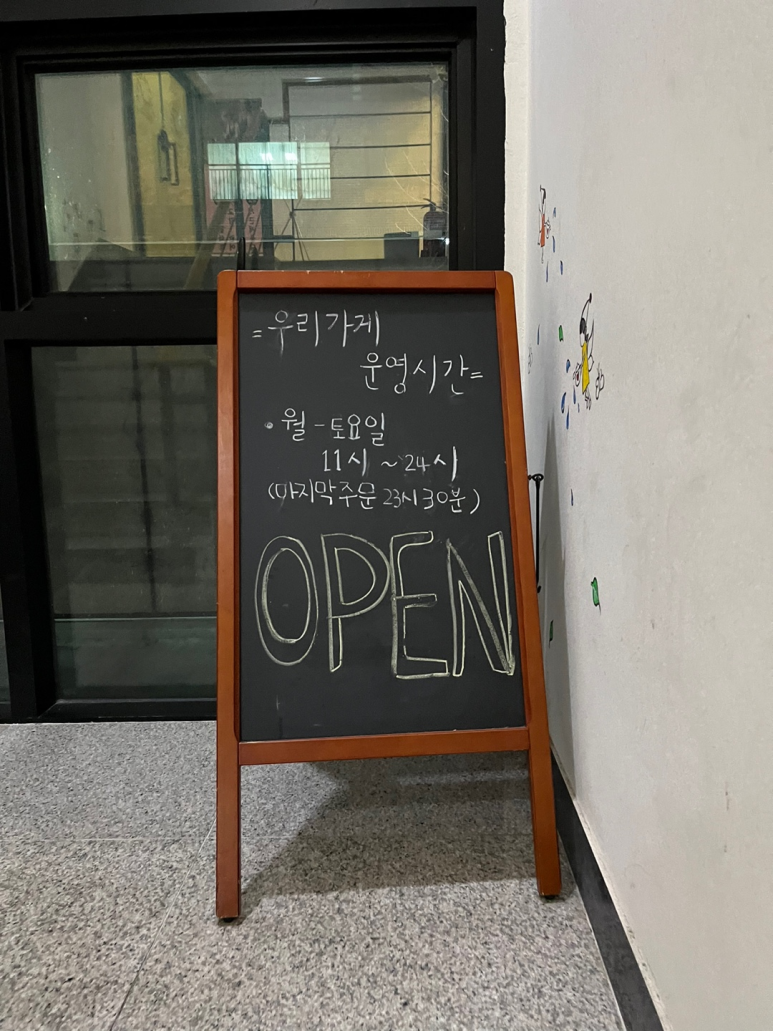 =우리가게
운영시간=
• 월-토요일
11시 ~24시
(마지막주문 23시30분)
OPEN